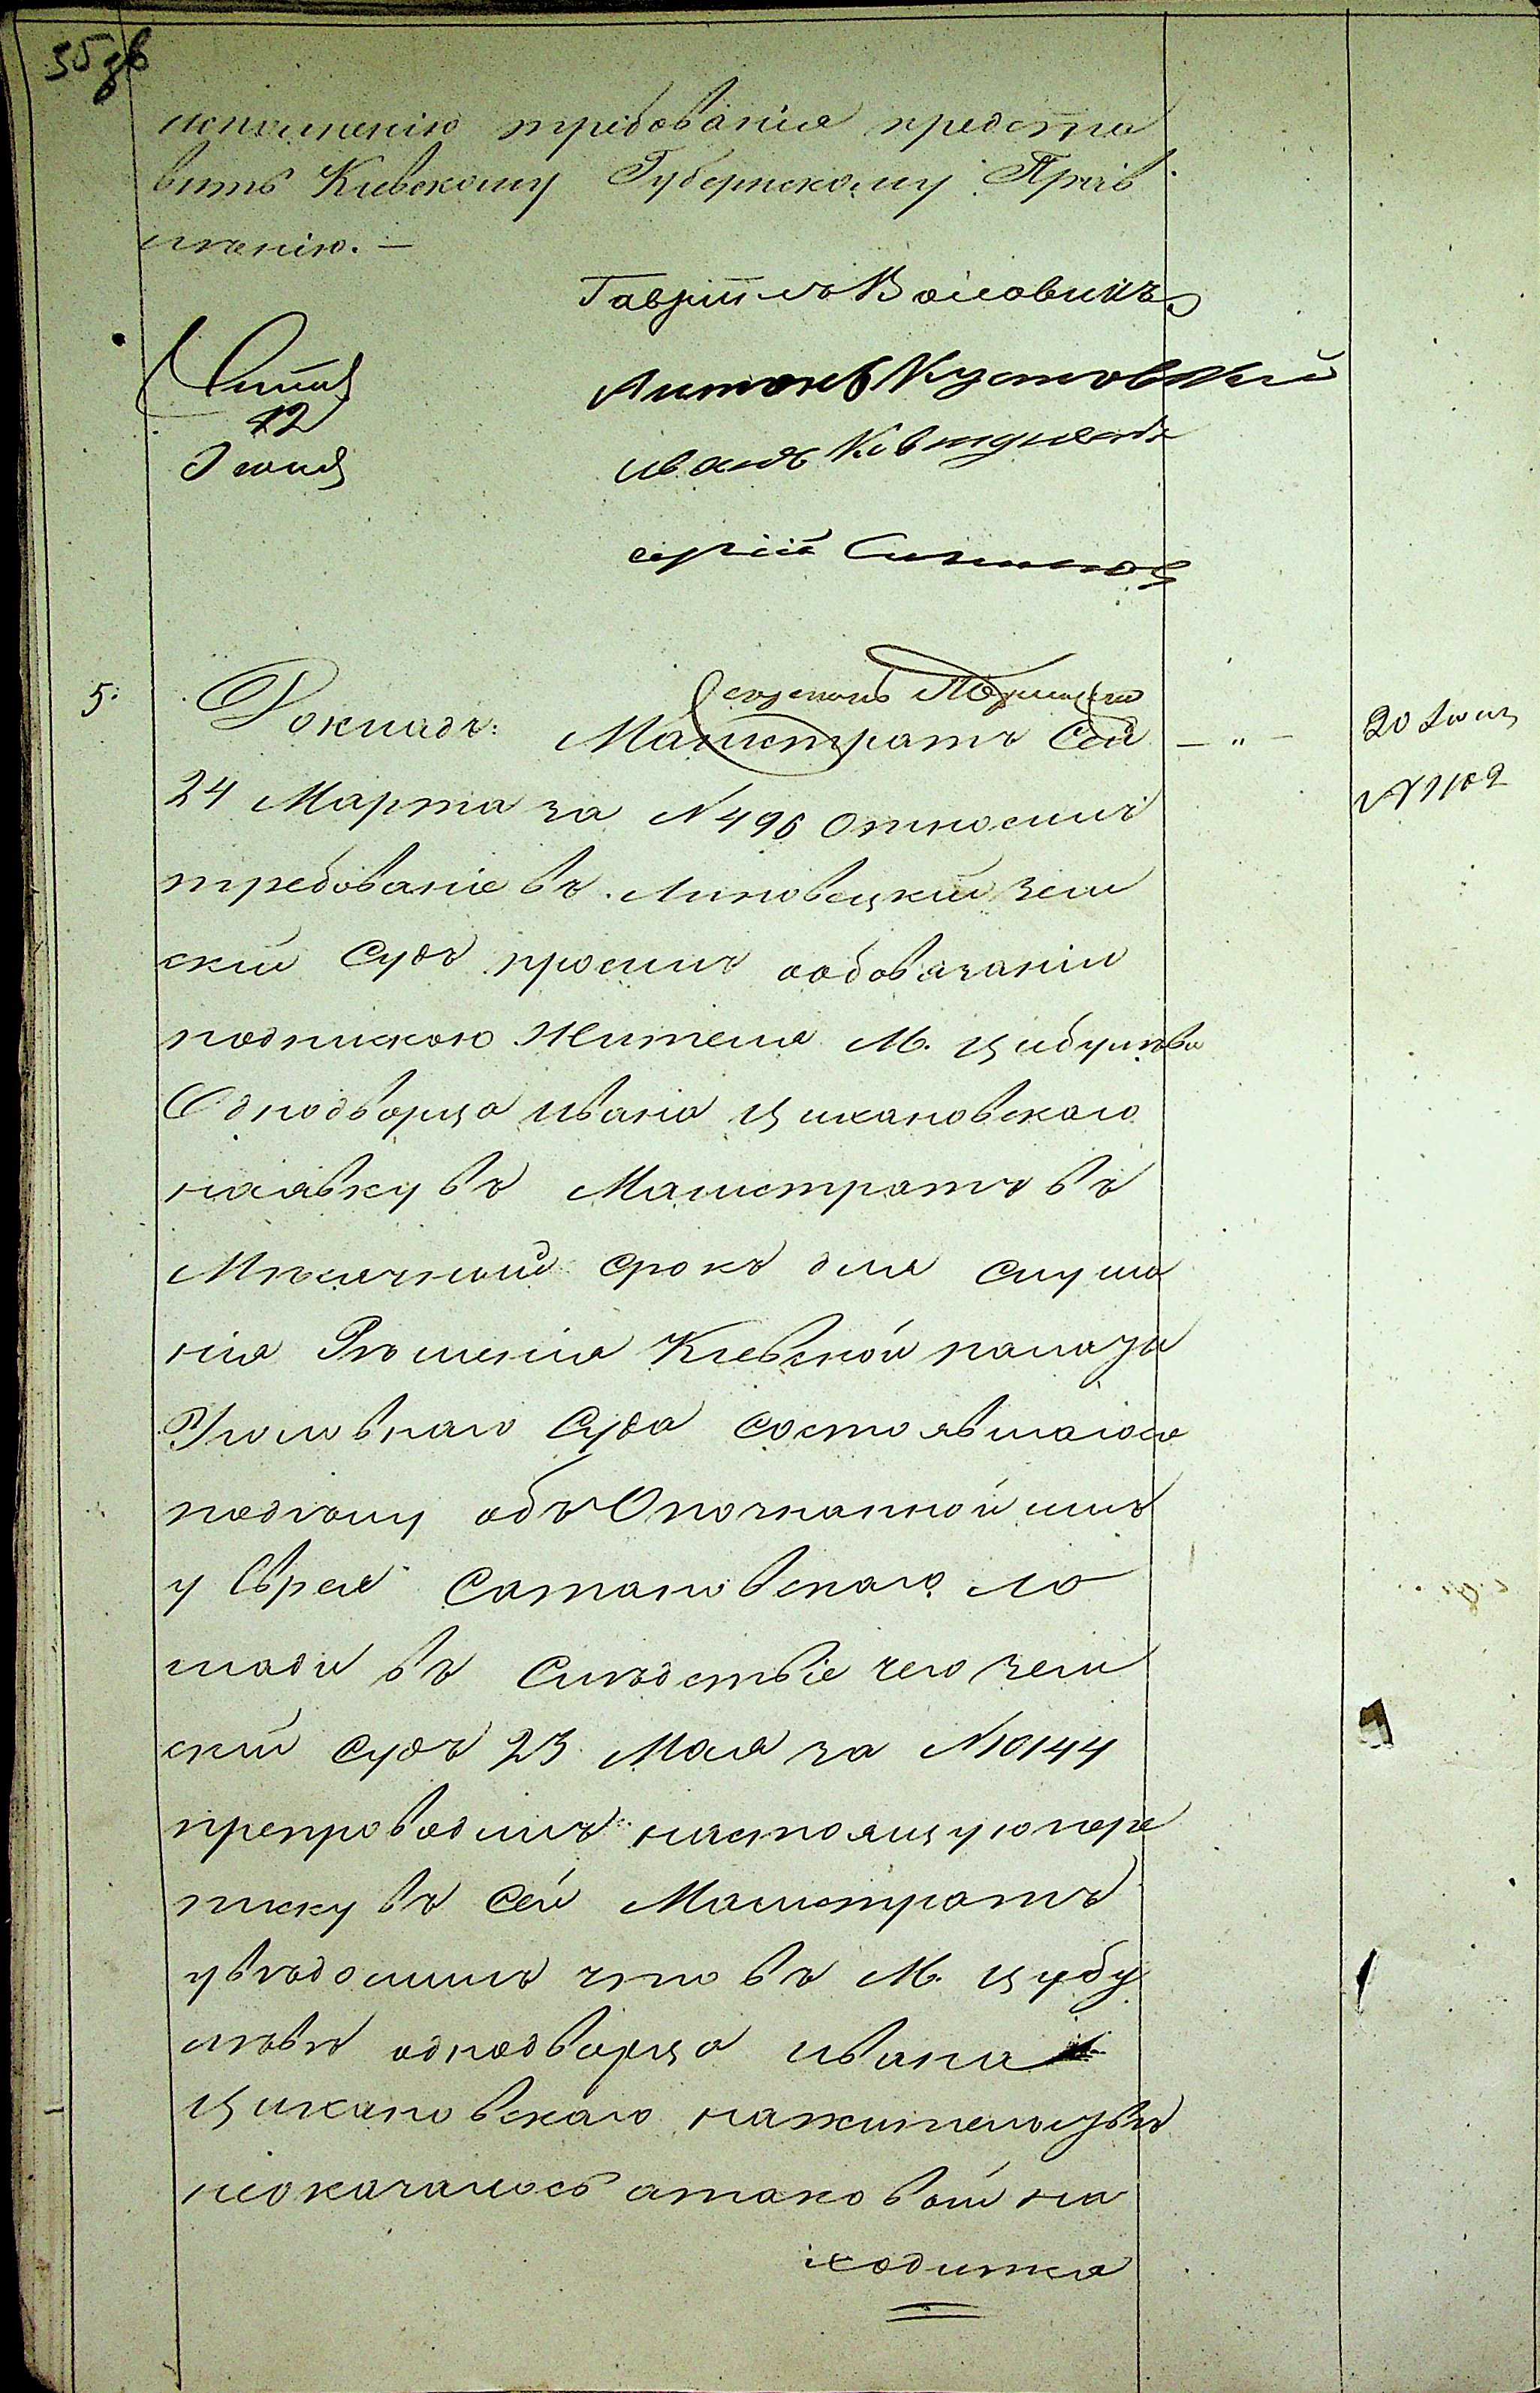 исполненію требованія предста
вить Кіевскому Губернскому Прав
ленію. —
Гавріилъ
Антонъ
12
Іюня
Иванъ
Сергій
5.
Докладъ: Магистратъ Сей — " —
20 Іюня
24 Марта за N 496 относилъ
№ 1102
требованіе въ Липовецкій Зем
скій Судъ просилъ о обовязаніи
подпискою Жителя М. Цибулева
Однодворца Ивана Цихановскаго
на явку въ Магистратъ въ
Мѣсячный срокъ для слуша
нія Рѣшенія Кіевской палаты
Уголовнаго Суда состоявшагося
по дѣлу объ Опознанной имъ
у Еврея Сатановскаго ло
шади въ Слѣдствіе чего зем
скій судъ 23 Мая за N 10144
препроводилъ настоящую пере
писку въ Сей Магистратъ
увѣдомилъ что въ М. Цубу
левѣ однодворца Ивана
Цихановскаго на жительствѣ
неоказалось атаковой на
ходится